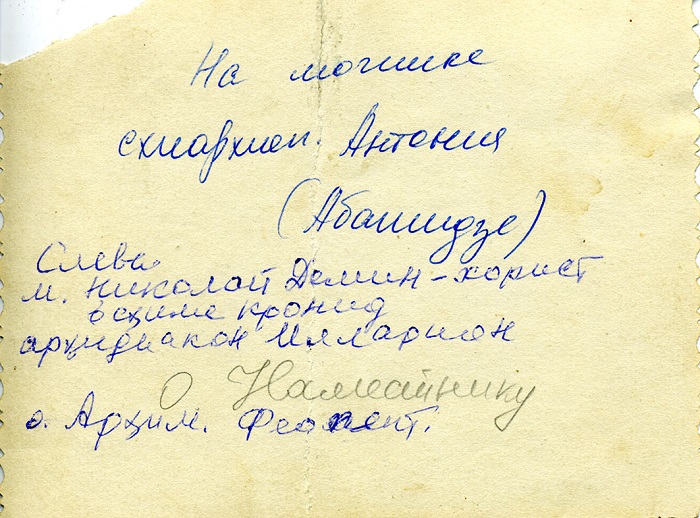 На могилке
схиархиеп. Антония
(Абашидзе)
Слева
м. Николай Демин - хорист
в схиме кронид
архидиакон Илларион
О Наместнику
о. Архим. Феопент.